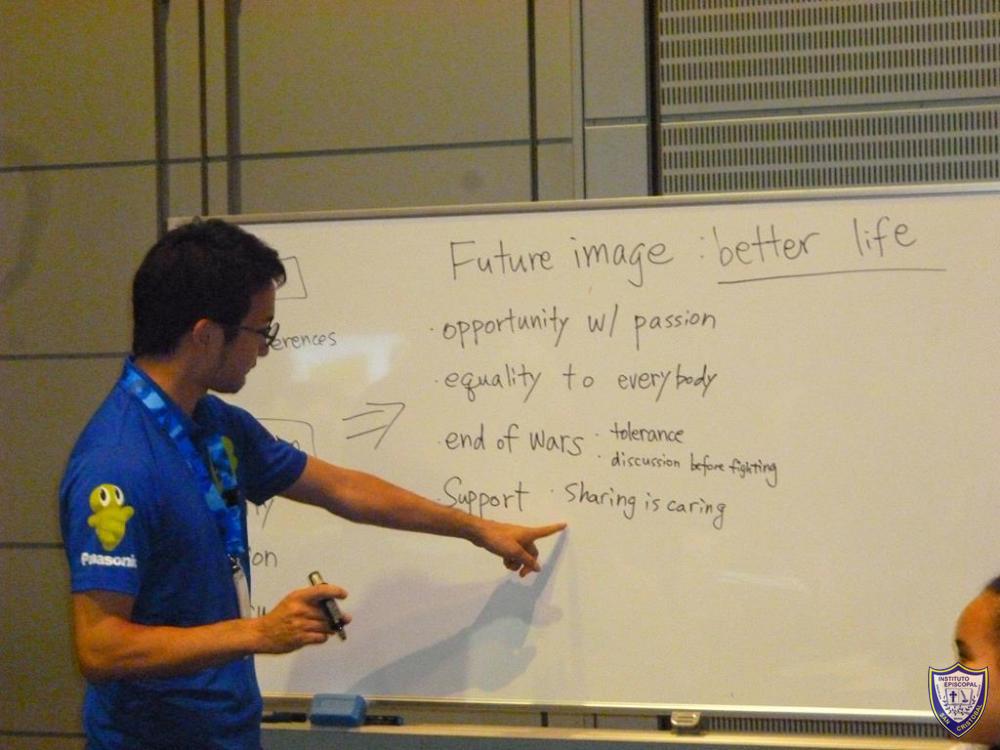 Future image : better life
· opportunity w/ passion
· equality to everybody
· end of wars · tolerance
· discussion before fighting
· Support · Sharing is caring
erences
ion
Panasonic
INSTITUTO
EPISCOPAL
SAN CRISTOBAL